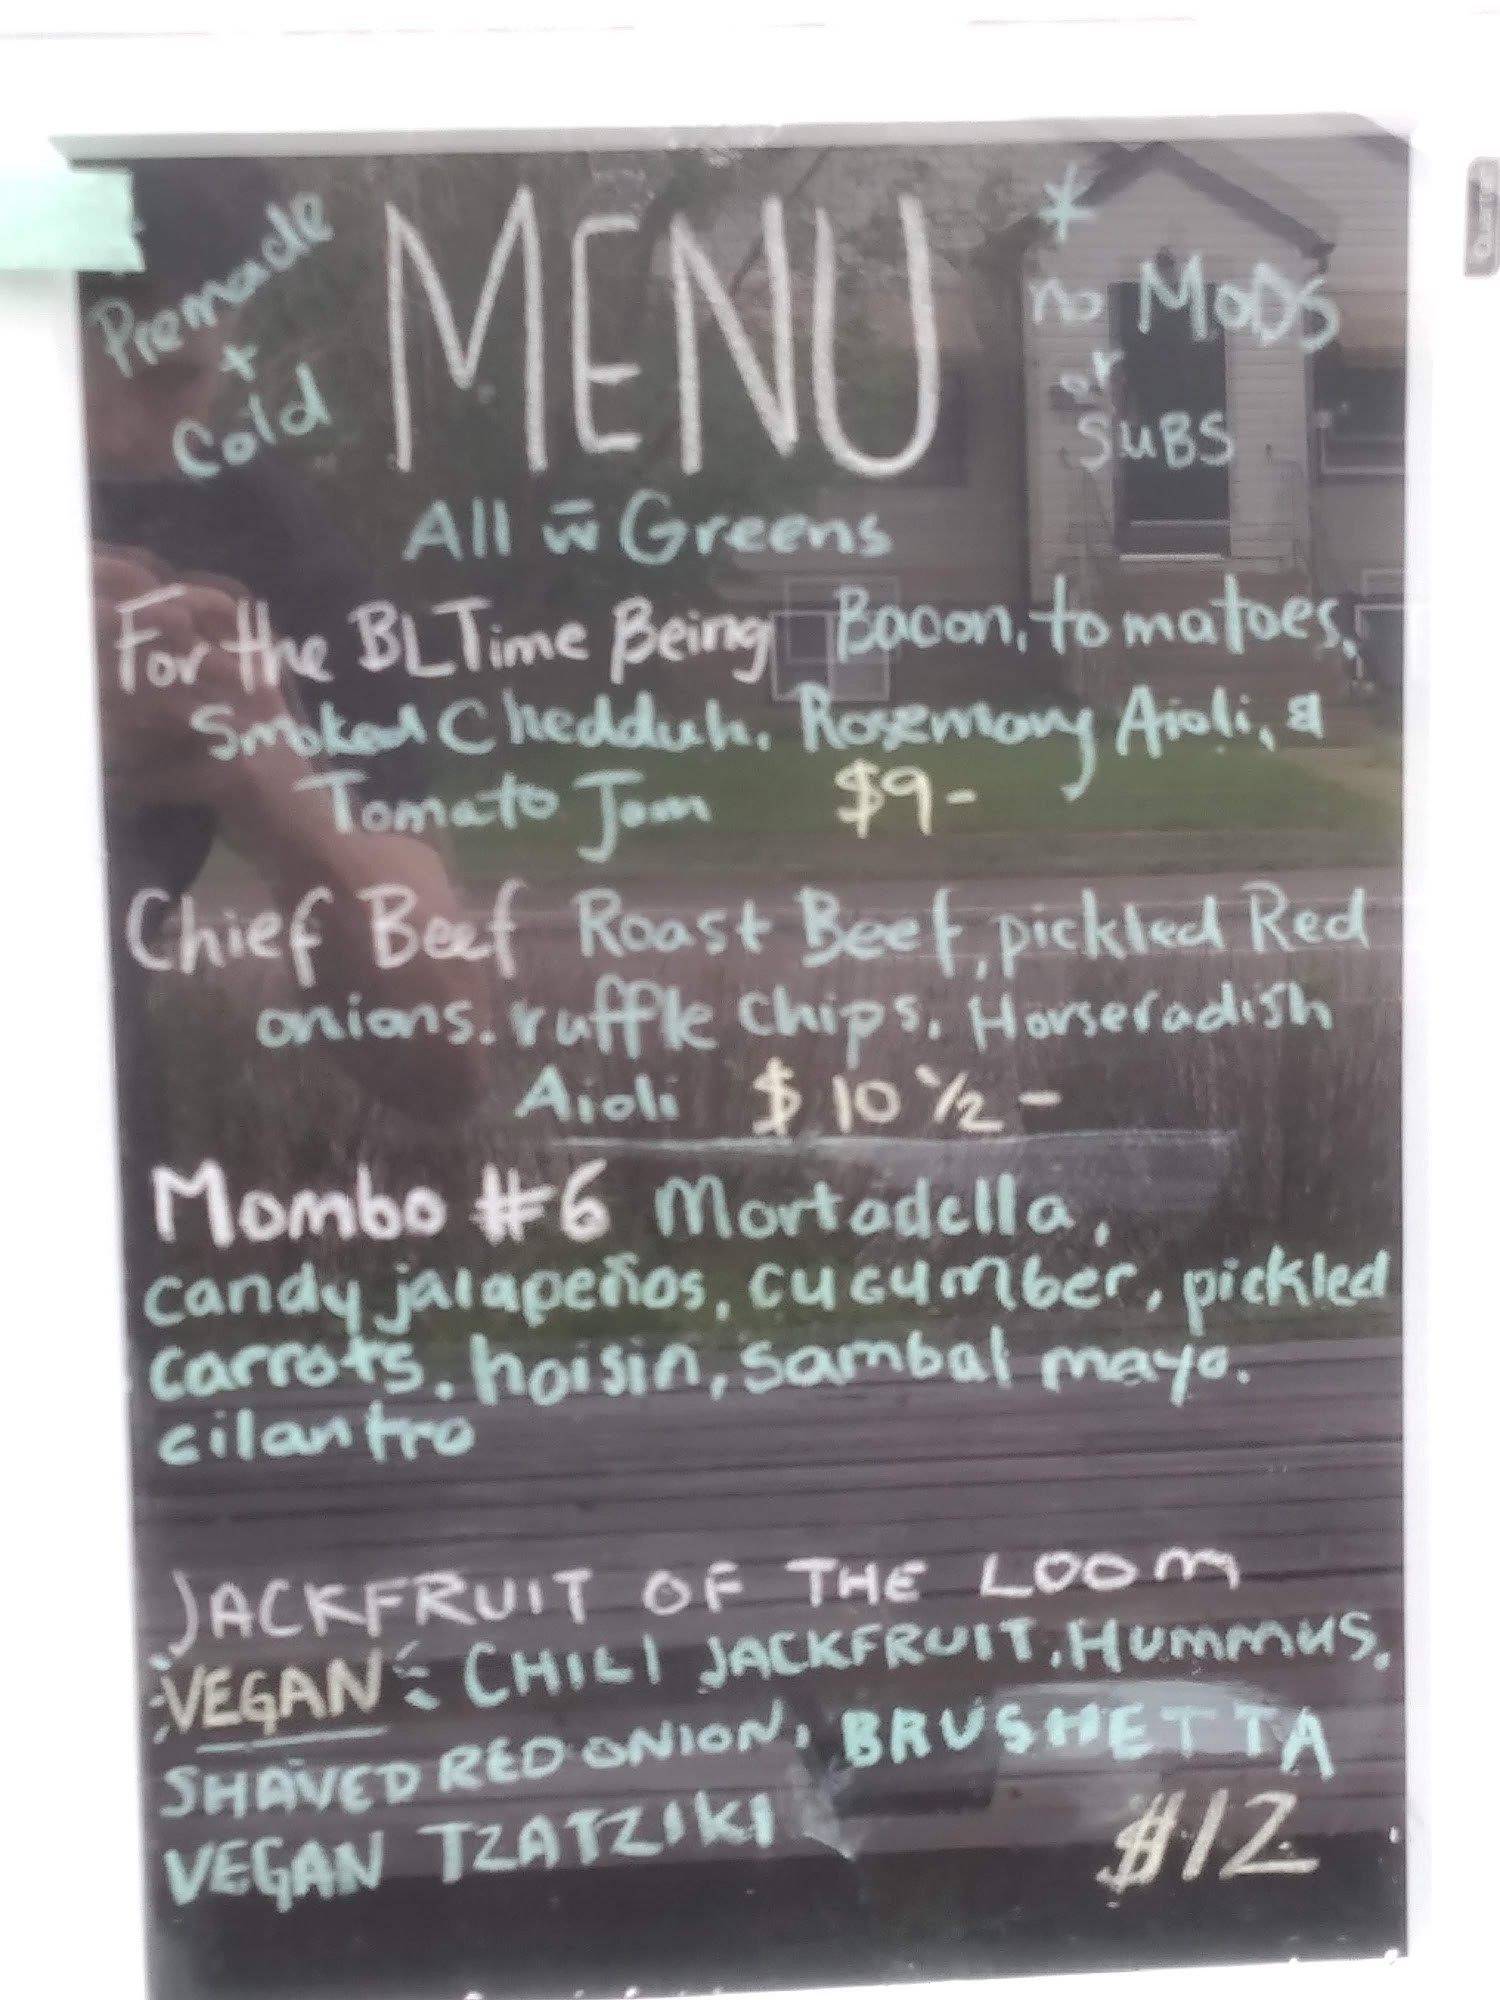 Premade
+
Cold
MENU
*
no MODS
or
SUBS
All w̄ Greens
For the BLTime Being Bacon, tomatoes,
Smoked Chedduh, Rosemary Aioli, &
Tomato Jam $9-
Chief Beef Roast Beef, pickled Red
onions, ruffle chips, Horseradish
Aioli $10 ½-
Mombo #6 Mortadella,
candy jalapeños, cucumber, pickled
carrots, hoisin, sambal mayo,
cilantro
JACKFRUIT OF THE LOOM
VEGAN CHILI JACKFRUIT, HUMMUS,
SHAVED RED ONION, BRUSHETTA
VEGAN TZATZIKI $12